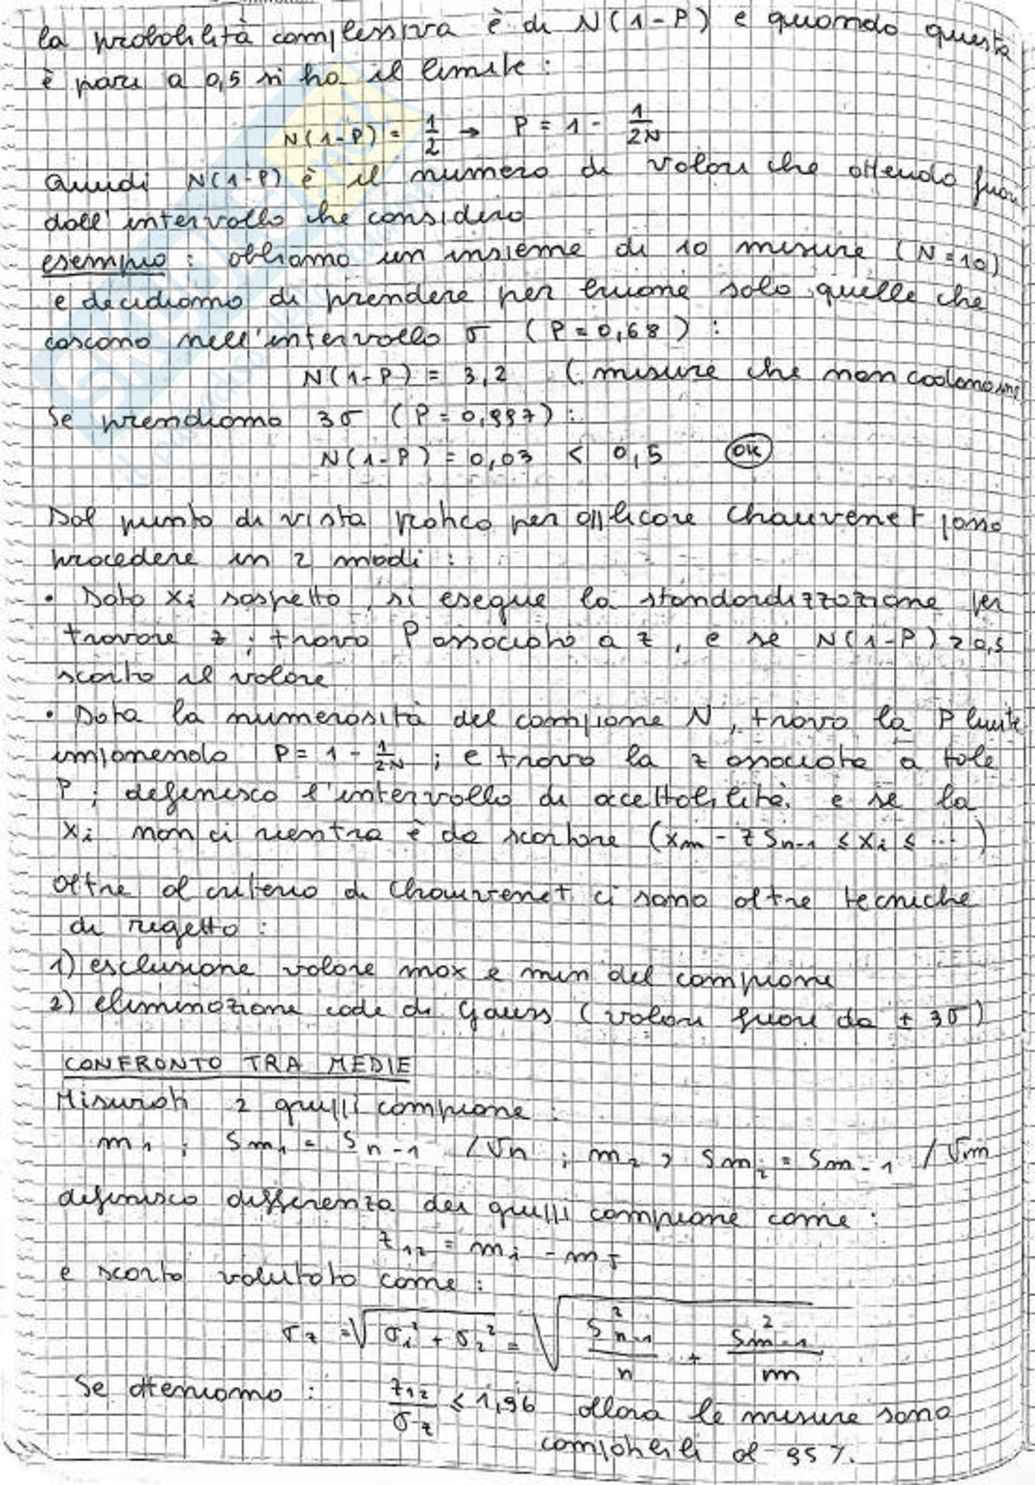 la probabilità complessiva è di N(1-P) e quando questa
è pari a 0,5 si ha il limite:
N(1-P) = 1/2 → P = 1 - 1/2N
Quindi N(1-P) è il numero di valori che ottengo fuori
dall'intervallo che considero
esempio: abbiamo un insieme di 10 misure (N=10)
e decidiamo di prendere per buone solo quelle che
cascano nell'intervallo σ (P=0,68):
N(1-P) = 3,2 (misure che non cadono in σ)
Se prendiamo 3σ (P=0,997):
N(1-P) = 0,03 < 0,5 OK
Dal punto di vista pratico per applicare Chauvenet posso
procedere in 2 modi:
• Dato xi sospetto, si esegue la standardizzazione per
trovare z; trovo P associato a z, e se N(1-P) ≥ 0,5
scarto il valore
• Data la numerosità del campione N, trovo la P limite
imponendo P = 1 - 1/2N; e trovo la z associata a tale
P; definisco l'intervallo di accettabilità, e se la
xi non ci rientra è da scartare (xm - z Sn-1 ≤ xi ≤ ...)
Oltre al criterio di Chauvenet ci sono altre tecniche
di rigetto:
1) esclusione valore max e min del campione
2) eliminazione code di Gauss (valori fuori da ± 3σ)
CONFRONTO TRA MEDIE
Misurati 2 gruppi campione:
m1; Sm1 = Sn-1 /√n; m2, Sm2 = Sm-1 /√m
definisco differenza dei gruppi campione come:
z12 = mi - mj
e scarto valutato come:
σz = √σ1² + σ2² = √S²n-1/n + S²m-1/m
Se otteniamo: z12/σz ≤ 1,96 allora le misure sono
compatibili al 95%.